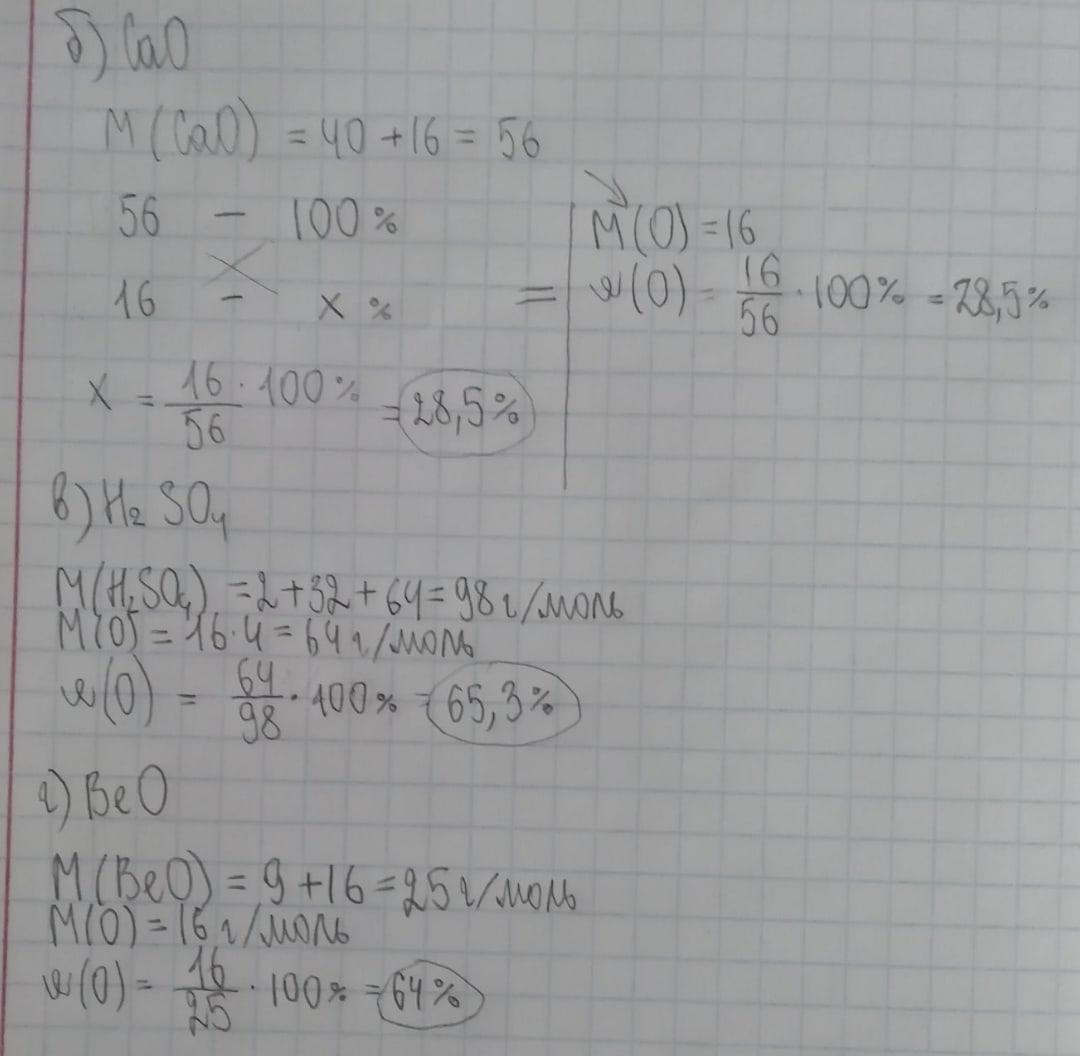 б) CaO
M(CaO) = 40 + 16 = 56
56 – 100%
16 – x %
x = 16/56 · 100% = 28,5%
= M(O) = 16
ω(O) = 16/56 · 100% = 28,5%
в) H₂SO₄
M(H₂SO₄) = 2 + 32 + 64 = 98 г/моль
M(O) = 16 · 4 = 64 г/моль
ω(O) = 64/98 · 100% = 65,3%
г) BeO
M(BeO) = 9 + 16 = 25 г/моль
M(O) = 16 г/моль
ω(O) = 16/25 · 100% = 64%